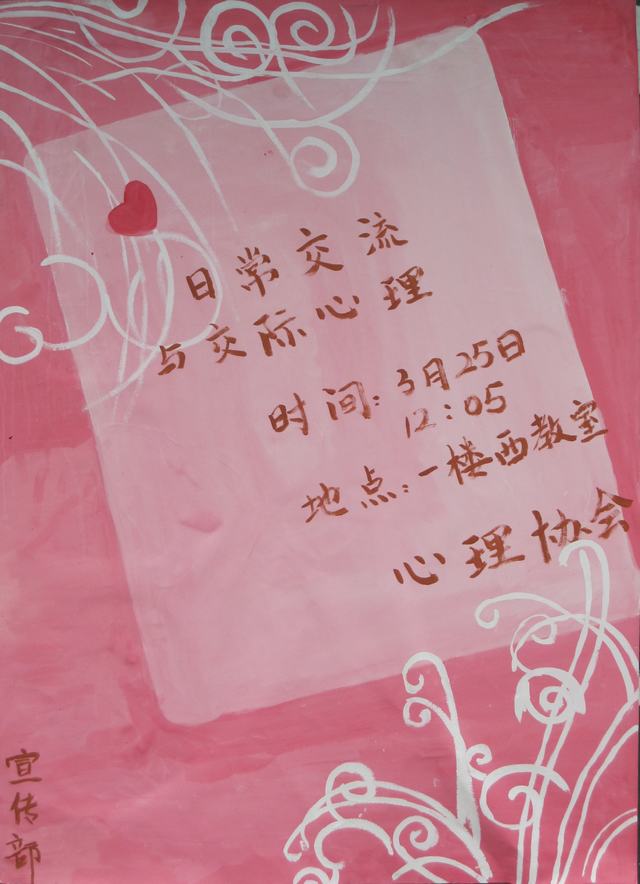 日常交流
与交际心理
时间:3月25日
12:05
地点:一楼西教室
心理协会
宣传部